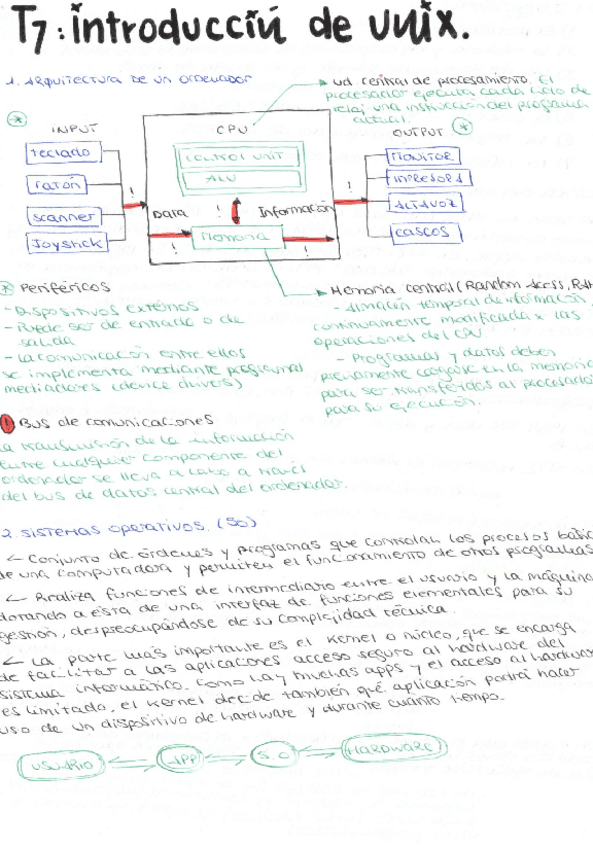 T7: introducción de unix.
1. ARQUITECTURA DE UN ORDENADOR
ud central de procesamiento. El
procesador ejecuta cada ciclo de
reloj una instrucción del programa
actual.
INPUT
CPU
OUTPUT
Teclado
ratón
scanner
Joystick
CONTROL UNIT
ALU
Data
!
Información
Memoria
!
!
!
!
MONITOR
IMPRESORA
ALTAVOZ
CASCOS
* Periféricos
- Dispositivos externos
- Puede ser de entrada o de
salida
- La comunicación entre ellos
se implementa mediante programas
mediadores (device drivers)
Memoria central (Random Access,
- Almacén temporal de información,
continuamente modificada x las
operaciones del CPU
- Programas y datos deben
previamente cargarse en la memoria
para ser transferidos al procesador
para su ejecución.
! Bus de comunicaciones
la transmisión de la información
entre cualquier componente del
ordenador se lleva a cabo a través
del bus de datos central del ordenador.
2. sistemas operativos. (SO)
- Conjunto de órdenes y programas que controlan los procesos básic
de una computadora y permiten el funcionamiento de otros programas
- Realiza funciones de intermediario entre el usuario y la máquina
dotando a ésta de una interfaz de funciones elementales para su
gestión, despreocupándose de su complejidad técnica.
- La parte más importante es el kernel o núcleo, que se encarga
de facilitar a las aplicaciones acceso seguro al hardware del
sistema informático. Como hay muchas apps y el acceso al hardware
es limitado, el kernel decide también qué aplicación podrá hacer
uso de un dispositivo de hardware y durante cuánto tiempo.
USUARIO
APP
S.O
HARDWARE